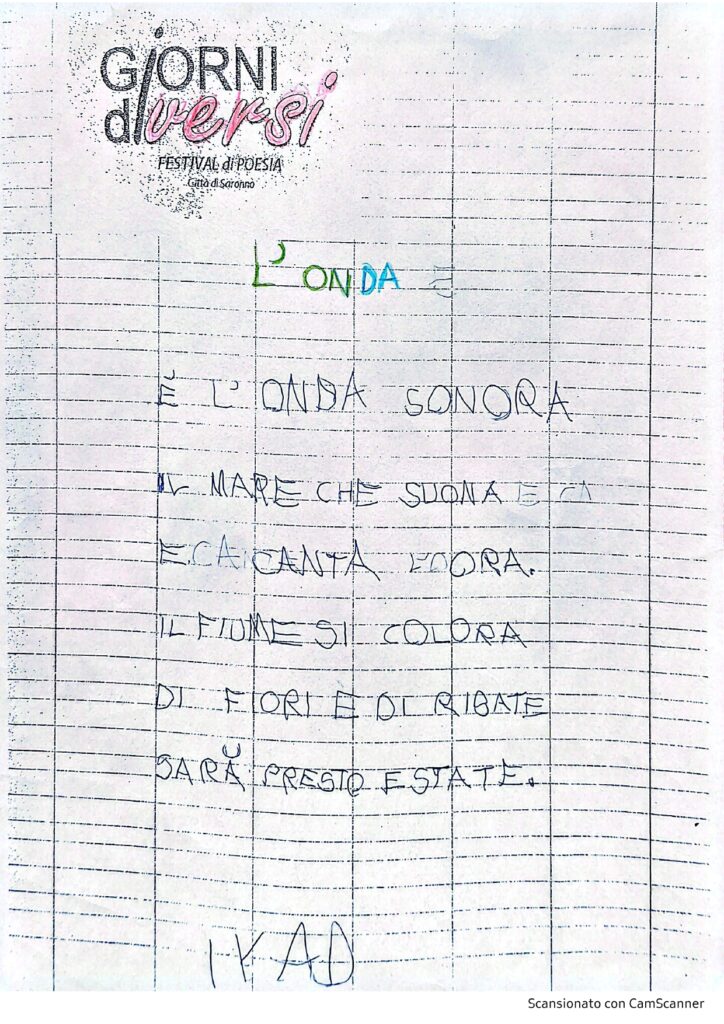 GiORNI
diversi
FESTIVAL di POESIA
Città di Saronno
L'ONDA
È L'ONDA SONORA
IL MARE CHE SUONA E CA
E CANTA ORA.
IL FIUME SI COLORA
DI FIORI E DI RIBATE
SARÀ PRESTO ESTATE.
IYAD
Scansionato con CamScanner